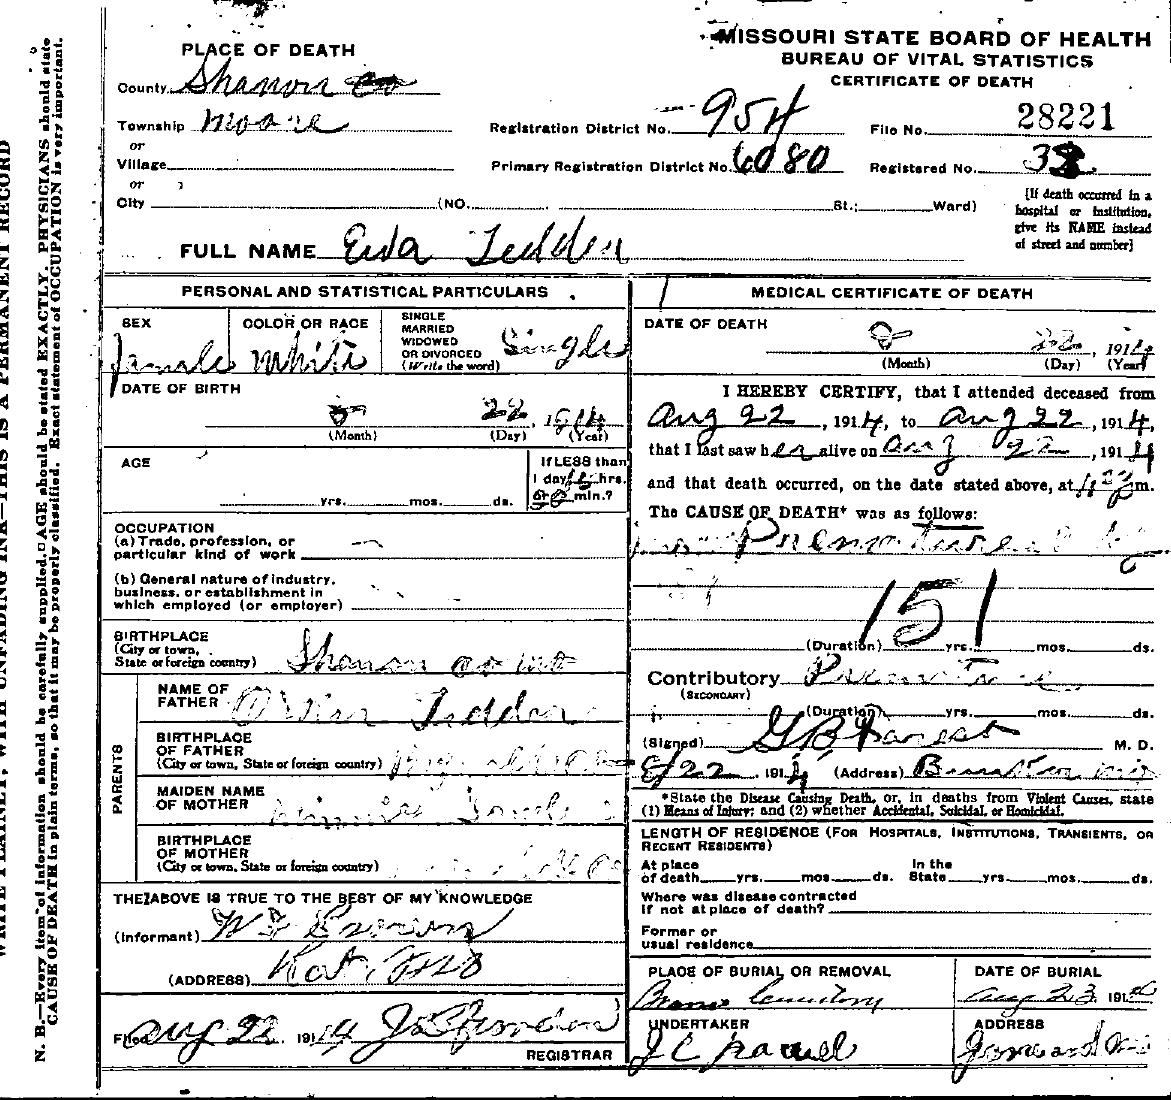 MISSOURI STATE BOARD OF HEALTH
BUREAU OF VITAL STATISTICS
CERTIFICATE OF DEATH
PLACE OF DEATH
County Shanon Co
Township Moore
or
Village
or
City (NO. St.; Ward)
Registration District No. 954 File No. 28221
Primary Registration District No. 6080 Registered No. 38
[If death occurred in a hospital or institution, give its NAME instead of street and number]
FULL NAME Eva Ledden
PERSONAL AND STATISTICAL PARTICULARS
SEX female
COLOR OR RACE White
SINGLE MARRIED WIDOWED OR DIVORCED (Write the word) Single
DATE OF BIRTH
8 22, 1914
(Month) (Day) (Year)
AGE
yrs. mos. ds.
If LESS than 1 day, hrs. or min.?
OCCUPATION
(a) Trade, profession, or particular kind of work
(b) General nature of industry, business, or establishment in which employed (or employer)
BIRTHPLACE (City or town, State or foreign country) Shanon Co Mo
PARENTS
NAME OF FATHER Ledden
BIRTHPLACE OF FATHER (City or town, State or foreign country)
MAIDEN NAME OF MOTHER
BIRTHPLACE OF MOTHER (City or town, State or foreign country)
THE ABOVE IS TRUE TO THE BEST OF MY KNOWLEDGE
(Informant) W
(ADDRESS) Kat Mo
Filed Aug 22, 1914
REGISTRAR
MEDICAL CERTIFICATE OF DEATH
DATE OF DEATH
8 22, 1914
(Month) (Day) (Year)
I HEREBY CERTIFY, that I attended deceased from
Aug 22, 1914, to Aug 22, 1914,
that I last saw her alive on Aug 22, 1914
and that death occurred, on the date stated above, at m.
The CAUSE OF DEATH* was as follows:
Premature
151
(Duration) yrs. mos. ds.
Contributory Premature
(SECONDARY)
(Duration) yrs. mos. ds.
(Signed) G B M. D.
8/22, 1914 (Address)
*State the Disease Causing Death, or, in deaths from Violent Causes, state (1) Means of Injury; and (2) whether Accidental, Suicidal, or Homicidal.
LENGTH OF RESIDENCE (FOR HOSPITALS, INSTITUTIONS, TRANSIENTS, OR RECENT RESIDENTS)
At place of death yrs. mos. ds. In the State yrs. mos. ds.
Where was disease contracted if not at place of death?
Former or usual residence
PLACE OF BURIAL OR REMOVAL
Cemetery
DATE OF BURIAL
Aug 23, 1914
UNDERTAKER
J C
ADDRESS
WRITE PLAINLY, WITH UNFADING INK—THIS IS A PERMANENT RECORD
N. B.—Every item of information should be carefully supplied. AGE should be stated EXACTLY. PHYSICIANS should state
CAUSE OF DEATH in plain terms, so that it may be properly classified. Exact statement of OCCUPATION is very important.